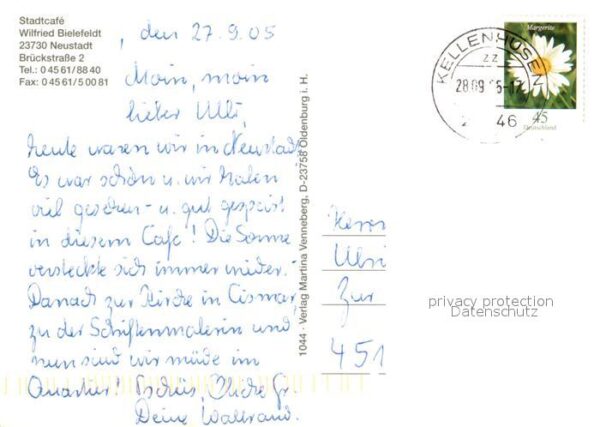 Stadtcafé
Wilfried Bielefeldt
23730 Neustadt
Brückstraße 2
Tel.: 0 45 61/88 40
Fax: 0 45 61/5 00 81
, den 27.9.05
Moin, moin
lieber Ulli,
heute waren wir in Neustadt.
Es war schön u. wir haben
viel gesehen - u. gut gespeist
in diesem Cafe! Die Sonne
versteckte sich immer wieder. -
Danach zur Kirche in Cismar
zu der Schriftenmalerin und
nun sind wir müde im
Quartier! Tschüs,
Deine
1044 - Verlag Martina Venneberg, D-23758 Oldenburg i. H.
KELLENHUSEN
zz
28.09
46
Margerite
45
Deutschland
Herrn
Ulri
Zur
451
privacy protection
Datenschutz